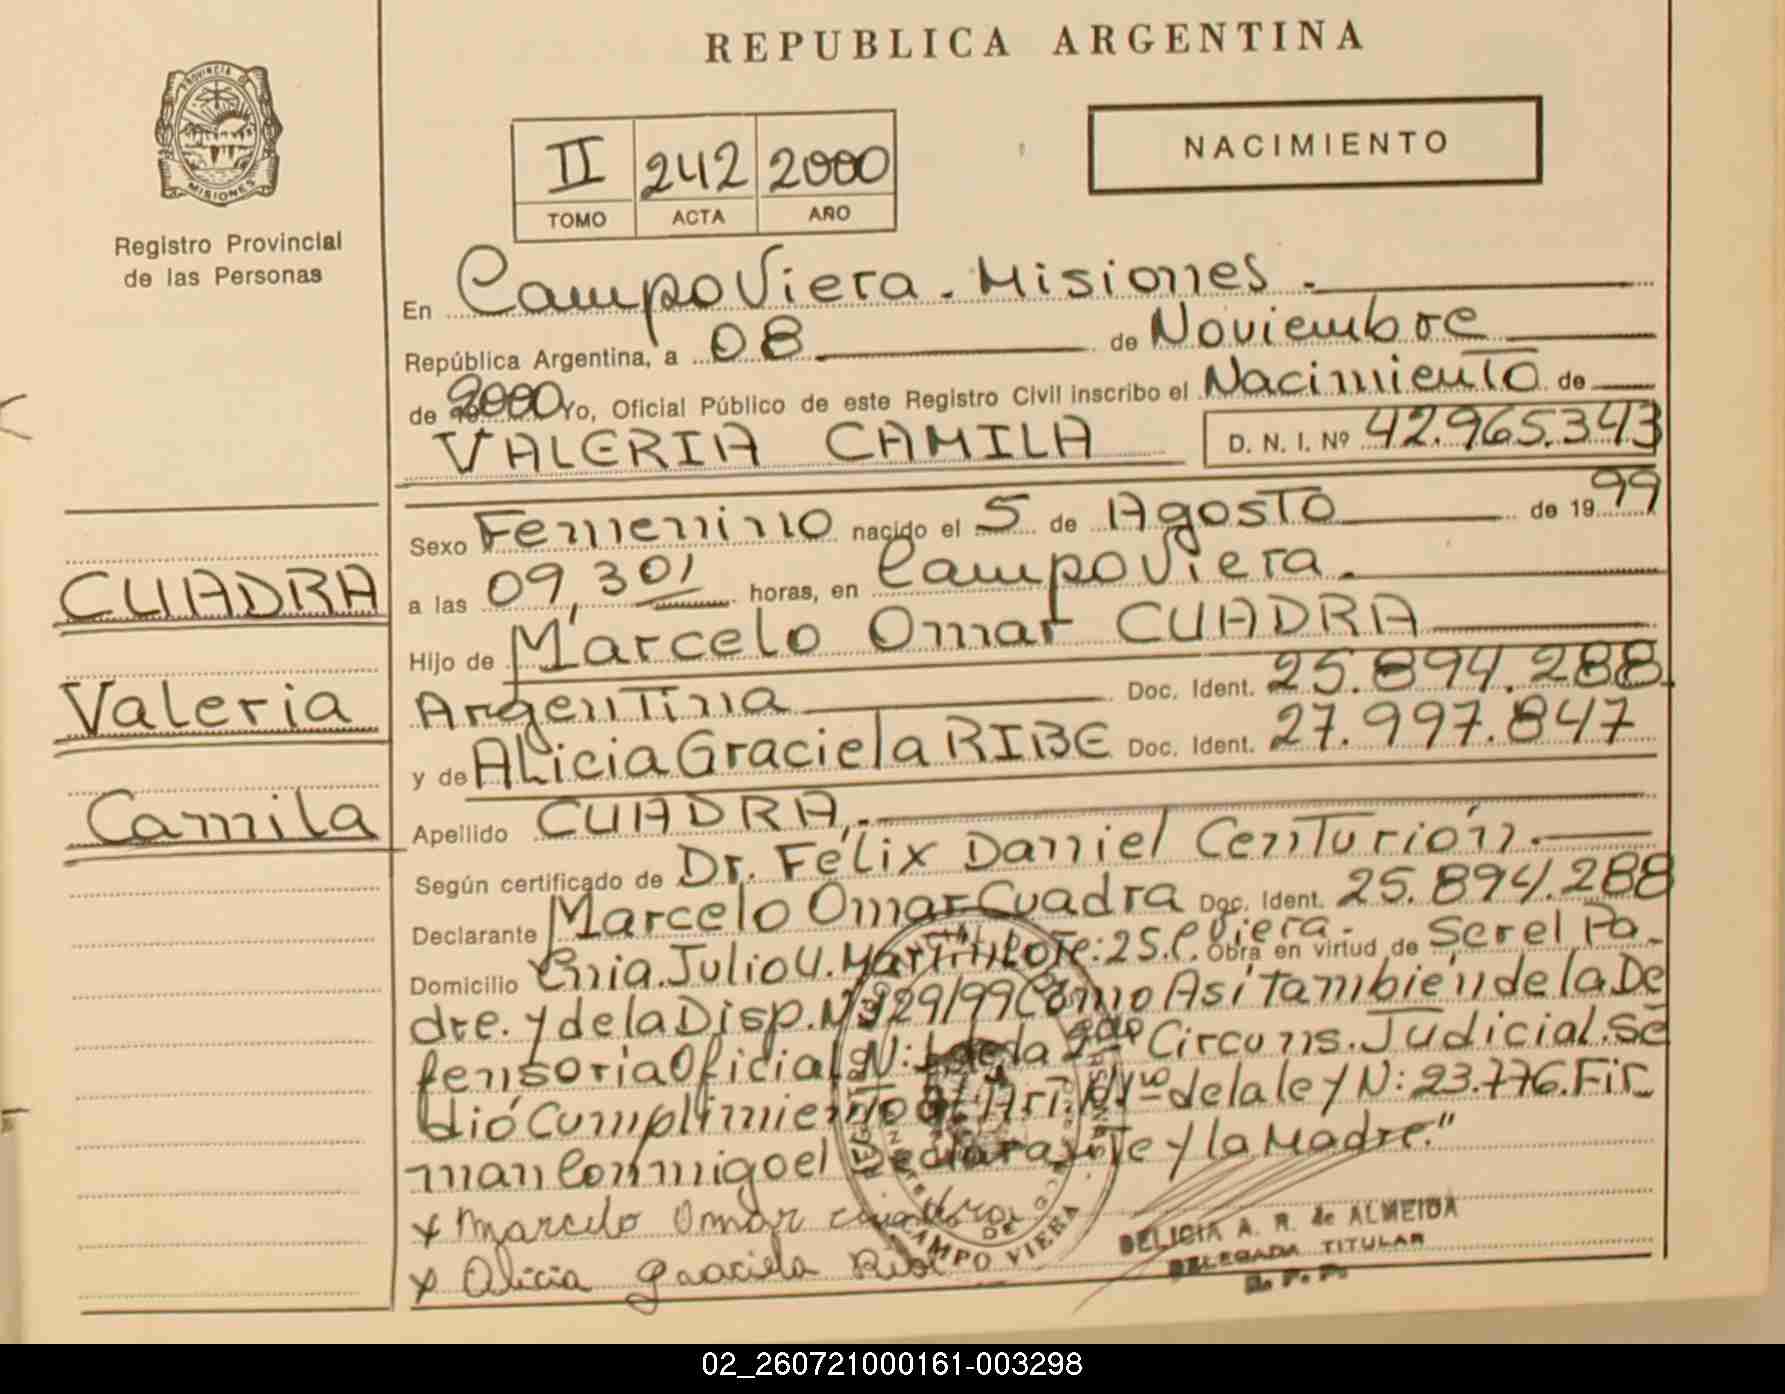 REPUBLICA ARGENTINA
PROVINCIA DE
MISIONES
Registro Provincial
de las Personas
II 242 2000
TOMO ACTA AÑO
NACIMIENTO
En Campo Viera - Misiones.
República Argentina, a 08 de Noviembre
de 2000 Yo, Oficial Público de este Registro Civil inscribo el Nacimiento de
VALERIA CAMILA D. N. I. Nº 42.965.343
Sexo Femenino nacido el 5 de Agosto de 1999
a las 09,30 horas, en Campo Viera.
Hijo de Marcelo Omar CUADRA
Argentina Doc. Ident. 25.894.288
y de Alicia Graciela RIBE Doc. Ident. 27.997.847
Apellido CUADRA.-
Según certificado de Dr. Félix Daniel Centurión.
Declarante Marcelo Omar Cuadra Doc. Ident. 25.894.288
Domicilio Cnia. Julio U. Martin Lote: 25.C. Viera. Obra en virtud de Ser el Pa-
dre. y de la Disp. Nº 329/99 Como Asi también de la De
fensoria Oficial N: 1 de la 2da Circuns. Judicial. Se
dió Cumplimiento al Art. Nº 1º de la ley N: 23.776. Fir-
man Conmigo el Declarante y la Madre."
x Marcelo Omar cuadra
x Alicia graciela Ribe
CUADRA
Valeria
Camila
CAMPO VIERA
DELICIA A. R. de ALMEIDA
DELEGADA TITULAR
R. P. P.
02_260721000161-003298